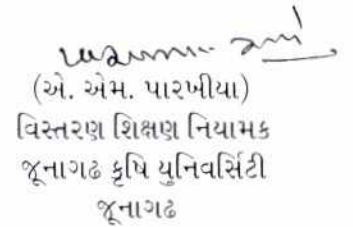 (એ. એમ. પારખીયા)
વિસ્તરણ શિક્ષણ નિયામક
જૂનાગઢ કૃષિ યુનિવર્સિટી
જૂનાગઢ